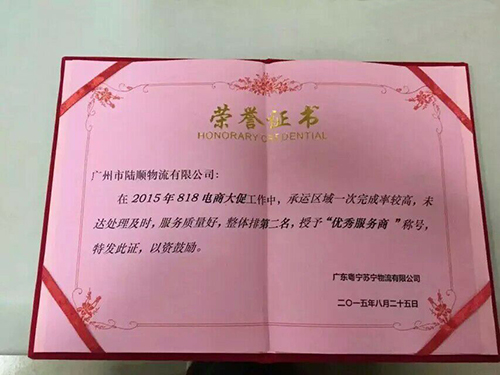 荣誉证书
HONORARY CREDENTIAL
广州市陆顺物流有限公司:
在2015年818电商大促工作中，承运区域一次完成率较高，未
达处理及时，服务质量好，整体排第二名，授予“优秀服务商”称号，
特发此证，以资鼓励。
广东粤宁苏宁物流有限公司
二〇一五年八月二十五日